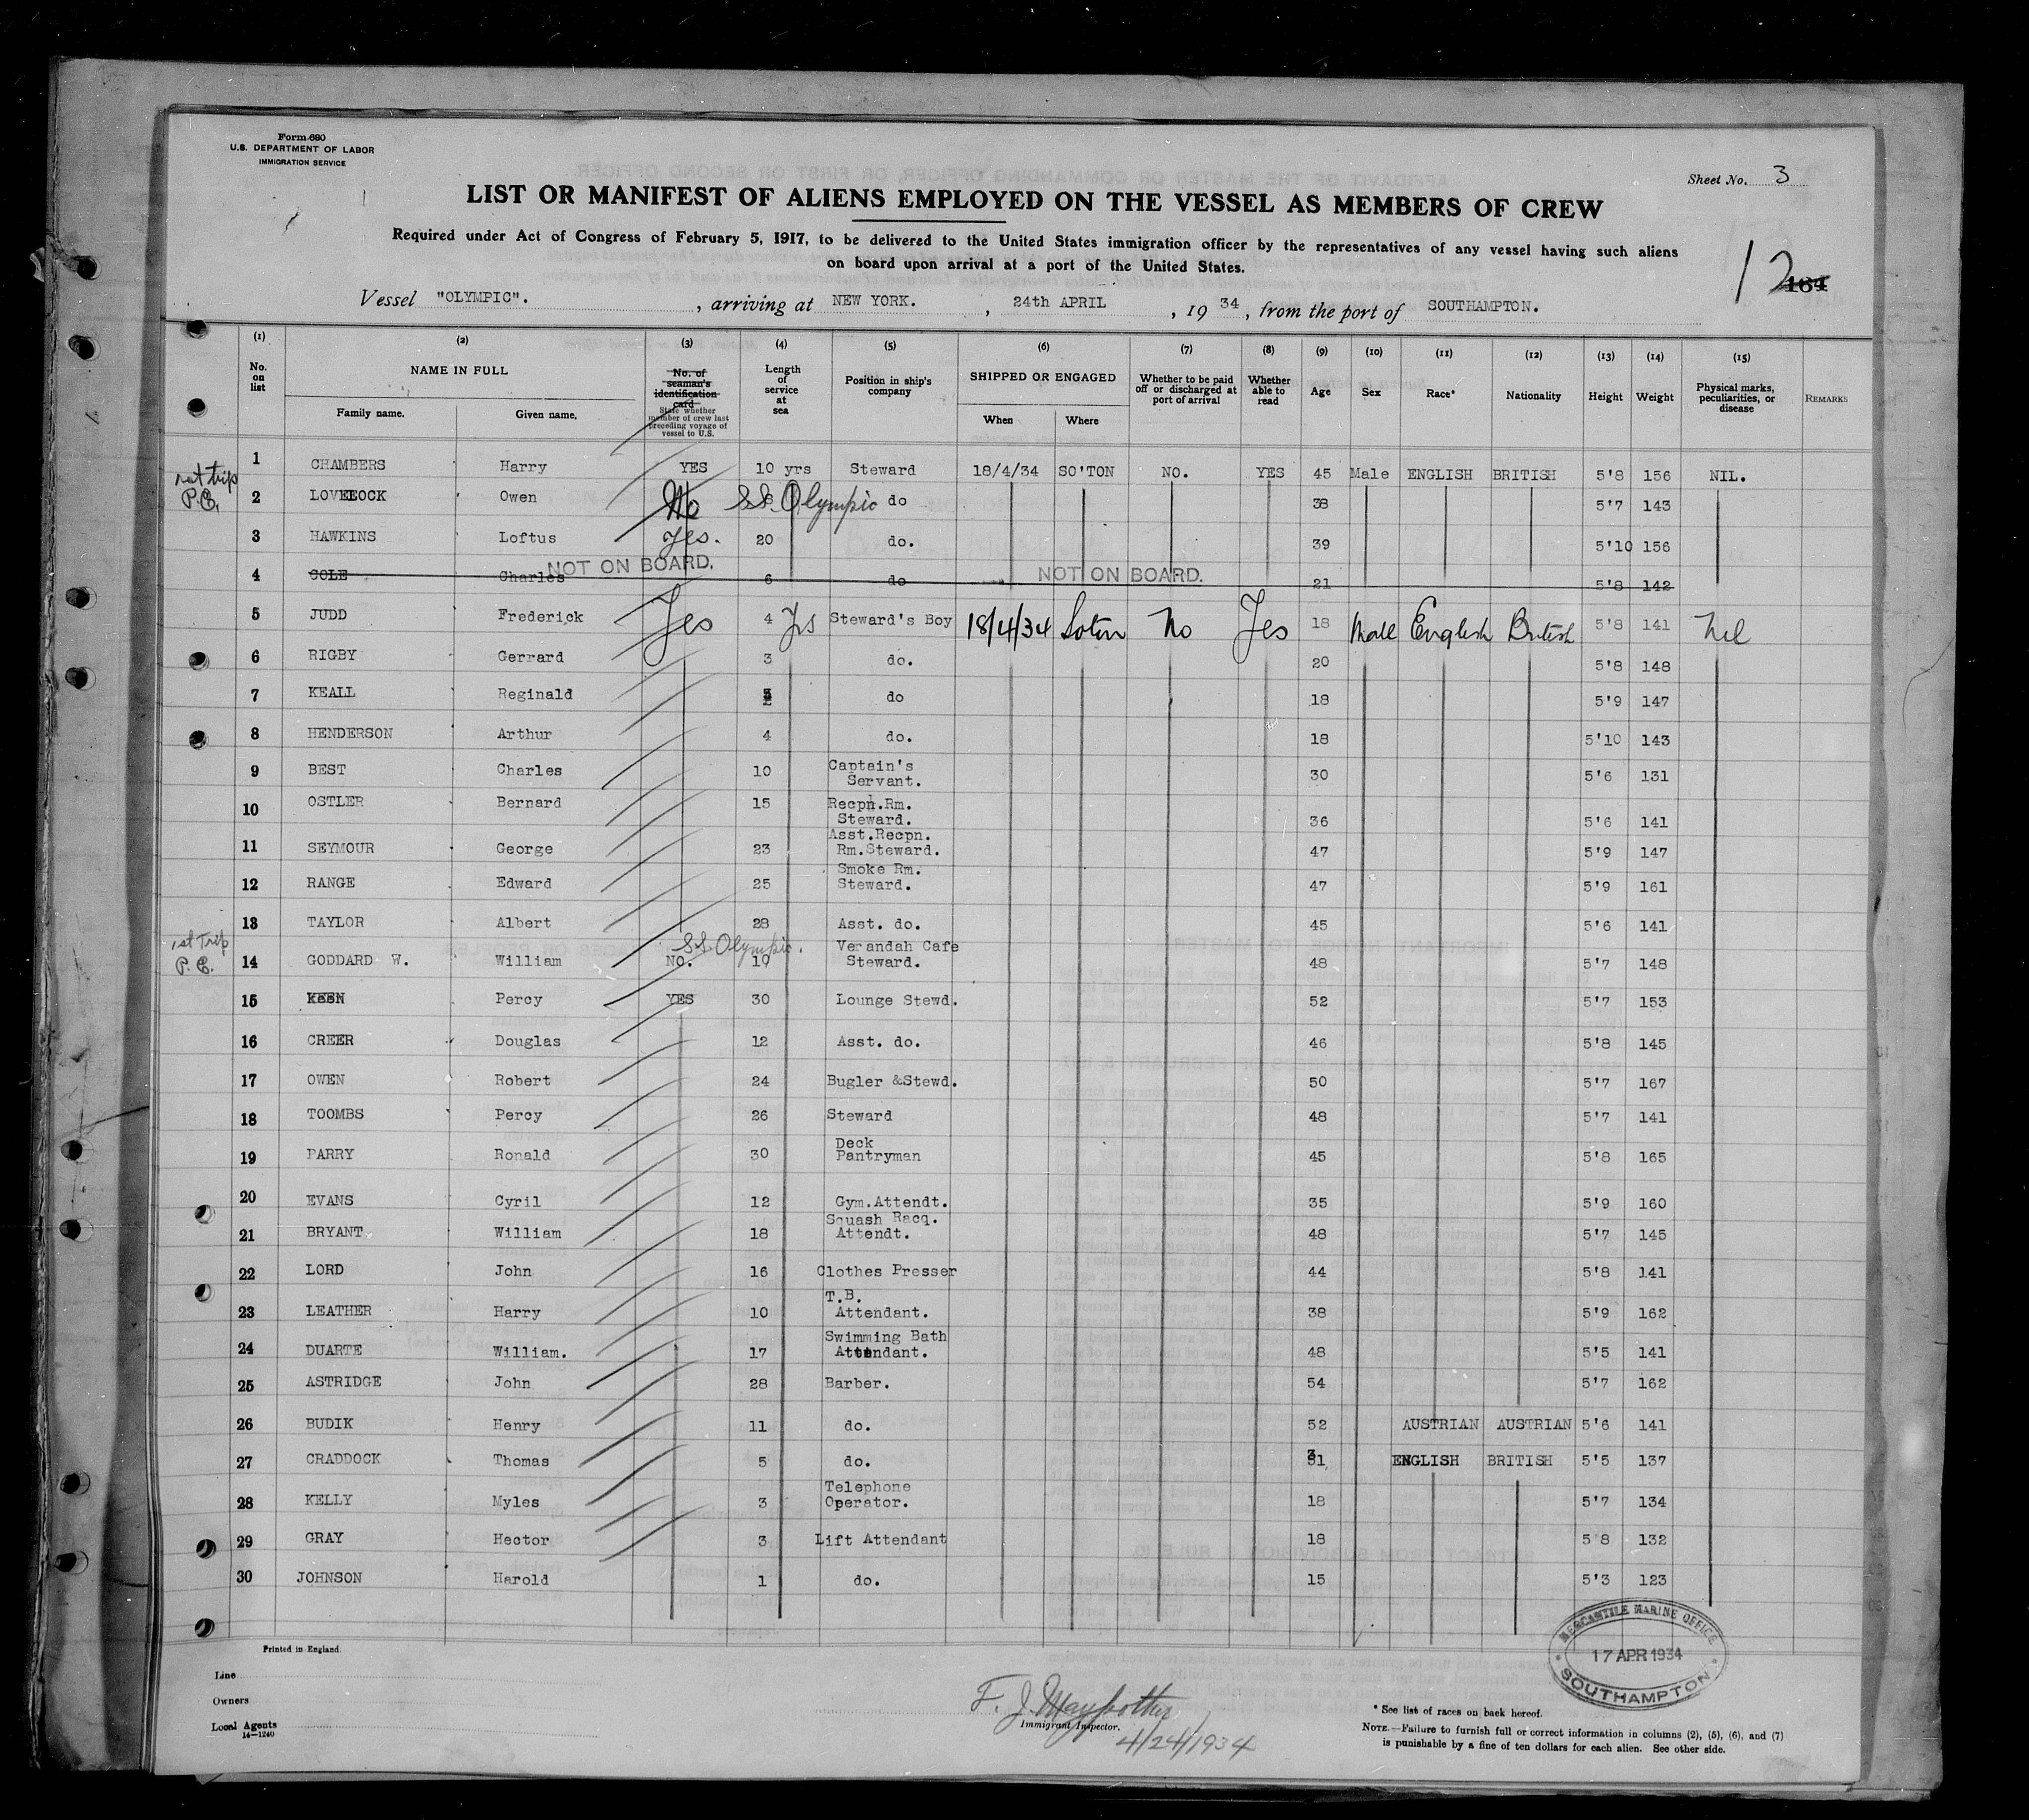 Form 680
U.S. DEPARTMENT OF LABOR
IMMIGRATION SERVICE
Sheet No. 3
LIST OR MANIFEST OF ALIENS EMPLOYED ON THE VESSEL AS MEMBERS OF CREW
Required under Act of Congress of February 5, 1917, to be delivered to the United States immigration officer by the representatives of any vessel having such aliens
on board upon arrival at a port of the United States.
12 164
Vessel "OLYMPIC". , arriving at NEW YORK. , 24th APRIL , 19 34 , from the port of SOUTHAMPTON.
(1) (2) (3) (4) (5) (6) (7) (8) (9) (10) (11) (12) (13) (14) (15)
No. on list
NAME IN FULL
Family name. Given name.
No. of seaman's identification card
State whether member of crew last preceding voyage of vessel to U.S.
Length of service at sea
Position in ship's company
SHIPPED OR ENGAGED
When Where
Whether to be paid off or discharged at port of arrival
Whether able to read
Age
Sex
Race*
Nationality
Height
Weight
Physical marks, peculiarities, or disease
REMARKS
1 CHAMBERS Harry YES 10 yrs Steward 18/4/34 SO'TON NO. YES 45 Male ENGLISH BRITISH 5'8 156 NIL.
P.E. 2 LOVELOCK Owen No S.S. Olympic do 38 5'7 143
3 HAWKINS Loftus Yes. 20 do. 39 5'10 156
NOT ON BOARD. NOT ON BOARD.
4 COLE Charles 6 do 21 5'8 142
5 JUDD Frederick Yes 4 Yrs Steward's Boy 18/4/34 Soton No Yes 18 Male English British 5'8 141 Nil
6 RIGBY Gerrard 3 do. 20 5'8 148
7 KEALL Reginald do 18 5'9 147
8 HENDERSON Arthur 4 do. 18 5'10 143
9 BEST Charles 10 Captain's Servant. 30 5'6 131
10 OSTLER Bernard 15 Recpn.Rm. Steward. 36 5'6 141
11 SEYMOUR George 23 Asst.Recpn. Rm.Steward. 47 5'9 147
12 RANGE Edward 25 Smoke Rm. Steward. 47 5'9 161
13 TAYLOR Albert 28 Asst. do. 45 5'6 141
1st Trip P.E. 14 GODDARD W. William NO. S.S. Olympic. 19 Verandah Cafe Steward. 48 5'7 148
15 KEEN Percy YES 30 Lounge Stewd. 52 5'7 153
16 CREER Douglas 12 Asst. do. 46 5'8 145
17 OWEN Robert 24 Bugler &Stewd. 50 5'7 167
18 TOOMBS Percy 26 Steward 48 5'7 141
19 PARRY Ronald 30 Deck Pantryman 45 5'8 165
20 EVANS Cyril 12 Gym.Attendt. 35 5'9 160
21 BRYANT William 18 Squash Racq. Attendt. 48 5'7 145
22 LORD John 16 Clothes Presser 44 5'8 141
23 LEATHER Harry 10 T.B. Attendant. 38 5'9 162
24 DUARTE William. 17 Swimming Bath Attendant. 48 5'5 141
25 ASTRIDGE John 28 Barber. 54 5'7 162
26 BUDIK Henry 11 do. 52 AUSTRIAN AUSTRIAN 5'6 141
27 CRADDOCK Thomas 5 do. 31 ENGLISH BRITISH 5'5 137
28 KELLY Myles 3 Telephone Operator. 18 5'7 134
29 GRAY Hector 3 Lift Attendant 18 5'8 132
30 JOHNSON Harold 1 do. 15 5'3 123
Printed in England
Line
Owners
Local Agents
14—1240
Immigrant Inspector.
4/24/1934
MERCANTILE MARINE OFFICE
17 APR 1934
SOUTHAMPTON
* See list of races on back hereof.
NOTE.—Failure to furnish full or correct information in columns (2), (5), (6), and (7)
is punishable by a fine of ten dollars for each alien. See other side.